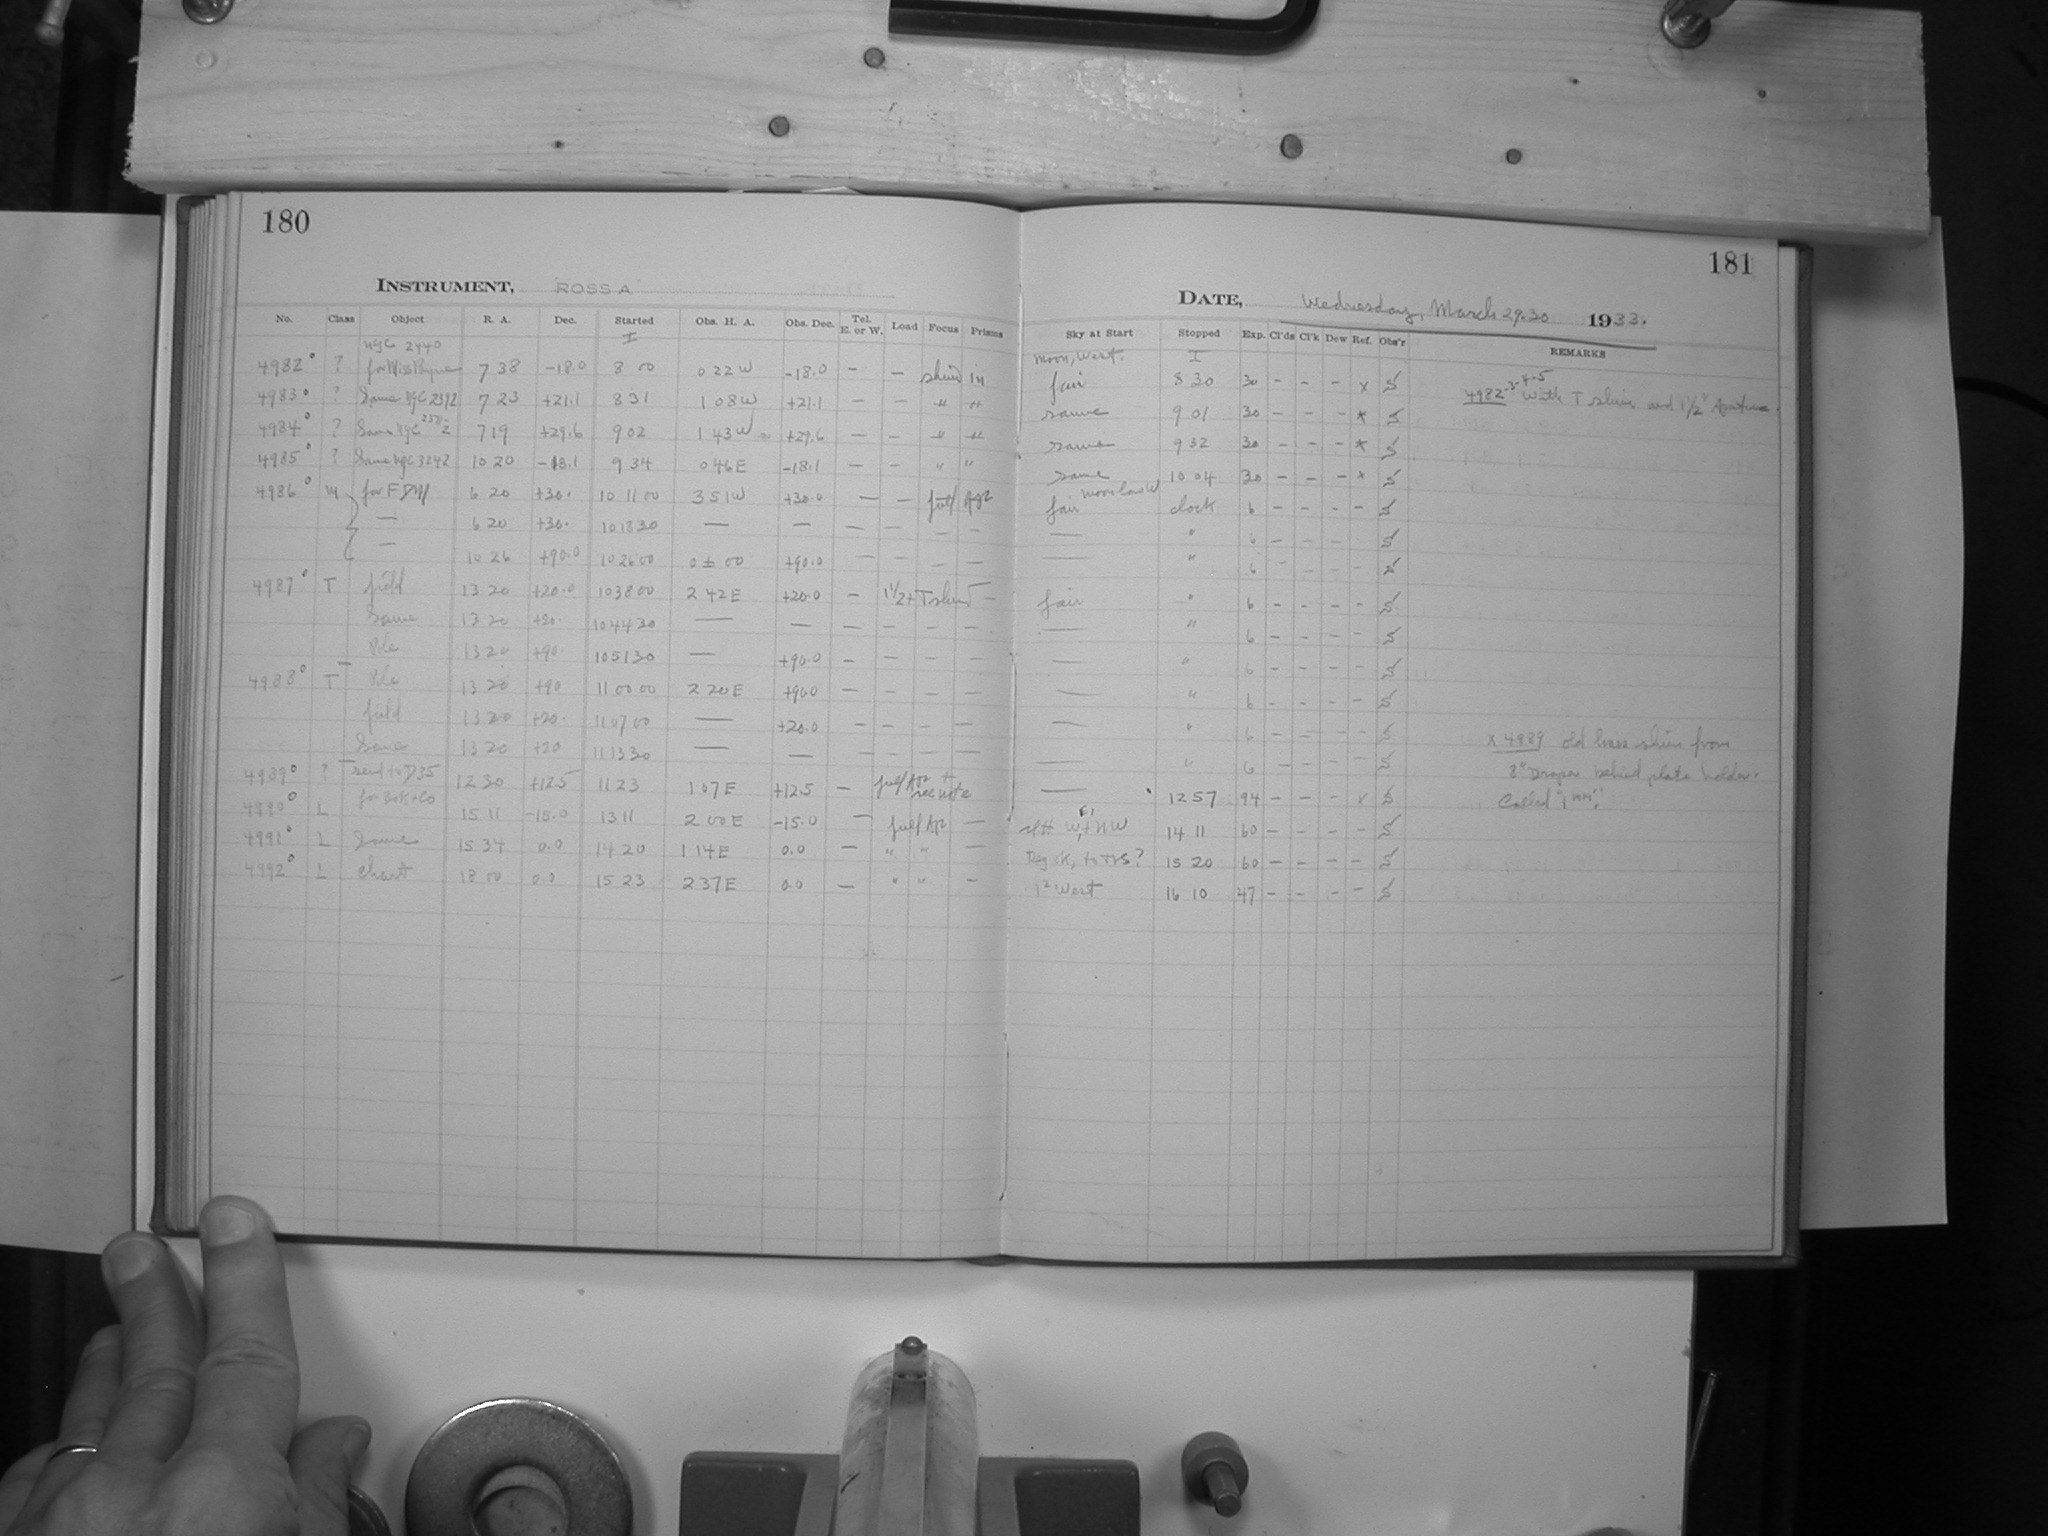 180
181
INSTRUMENT, ROSS A
DATE, Wednesday, March 29.30 1933.
No. Class Object R. A. Dec. Started Obs. H. A. Obs. Dec. Tel. E. or W. Load Focus Prisms Sky at Start Stopped Exp. Cl'ds Cl'k Dew Ref. Obs'r REMARKS
NGC 2440 I moon, West. I
4982° ? for Miss 7 38 -18.0 8 00 0 22 W -18.0 — — shim in fair 8 30 30 - - - x S 4982-3-4-5 With T shim and 1 1/2" Aperture.
4983° ? Same NGC 2392 7 23 +21.1 8 31 1 08 W +21.1 — — " " same 9 01 30 - - - x S
4984° ? Same NGC 2371-2 7 19 +29.6 9 02 1 43 W +29.6 — — " " same 9 32 30 - - - x S
4985° ? Same NGC 3242 10 20 -18.1 9 34 0 46 E -18.1 — — " " same 10 04 30 - - - x S
4986° M for 6 20 +30. 10 11 00 3 51 W +30.0 — — full Apr fair moon low W clock 6 - - - - S
— 6 20 +30. 10 18 30 — — — — — — — " 6 - - - - S
— 10 26 +90.0 10 26 00 0 ± 00 +90.0 — — — — — " 6 - - - - S
4987° T field 13 20 +20.0 10 38 00 2 42 E +20.0 — 1 1/2 + T shim — fair " 6 - - - - S
Same 13 20 +20. 10 44 30 — — — — — — — " 6 - - - - S
Pole 13 20 +90. 10 51 30 — +90.0 — — — — — " 6 - - - - S
4988° T Pole 13 20 +90 11 00 00 2 20 E +90.0 — — — — — " 6 - - - - S
field 13 20 +20. 11 07 00 — +20.0 — — — — — " 6 - - - - S
Same 13 20 +20 11 13 30 — — — — — — — " 6 - - - - S x 4989 old brass shim from
8" Draper behind plate holder.
4989° ? send to D35 12 30 +12.5 11 23 1 07 E +12.5 — full Apr + see note — 12 57 94 - - - x S Called "1 mm".
4990° L for 15 11 -15.0 13 11 2 00 E -15.0 — full Apr — W, + NW 14 11 60 - - - - S
4991° L Same 15 34 0.0 14 20 1 14 E 0.0 — " " — 15 20 60 - - - - S
4992° L chart 18 00 0.0 15 23 2 37 E 0.0 — " " — West 16 10 47 - - - - S